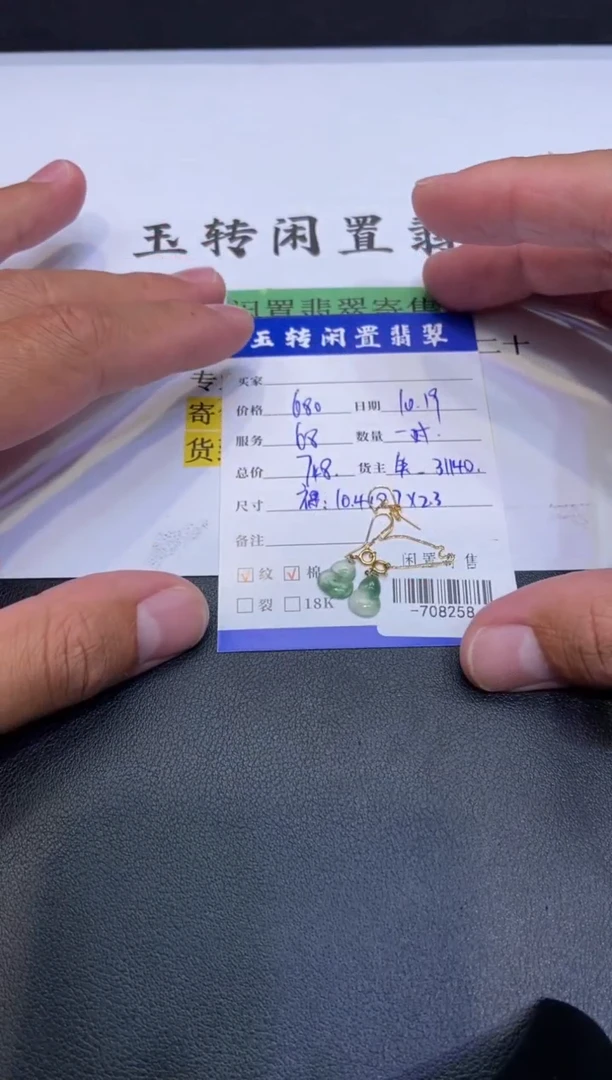 玉转闲置翡
闲置翡翠寄售
玉转闲置翡翠
二十
专
寄
货
买家
价格 680 日期 10.19
服务 68 数量 一对.
总价 748. 货主 31140.
尺寸 裸: 10.4 7X2.3
备注
闲置 售
纹 棉
裂 18K
-708258